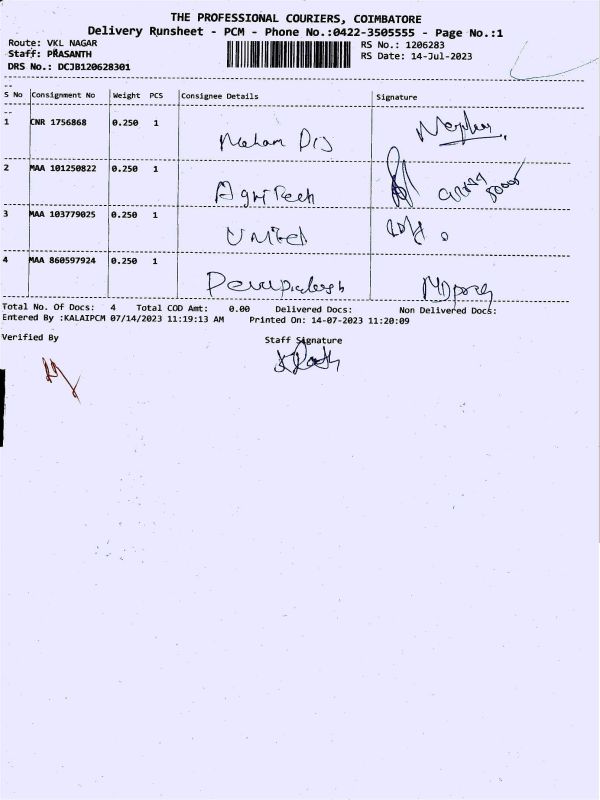 THE PROFESSIONAL COURIERS, COIMBATORE
Delivery Runsheet - PCM - Phone No.:0422-3505555 - Page No.:1
Route: VKL NAGAR
RS No.: 1206283
Staff: PRASANTH
RS Date: 14-Jul-2023
DRS No.: DCJB120628301
S No Consignment No Weight PCS Consignee Details Signature
1 CNR 1756868 0.250 1
2 MAA 101250822 0.250 1 AgriTech
3 MAA 103779025 0.250 1 United
4 MAA 860597924 0.250 1
Total No. Of Docs: 4 Total COD Amt: 0.00 Delivered Docs: Non Delivered Docs:
Entered By :KALAIPCM 07/14/2023 11:19:13 AM Printed On: 14-07-2023 11:20:09
Verified By Staff Signature